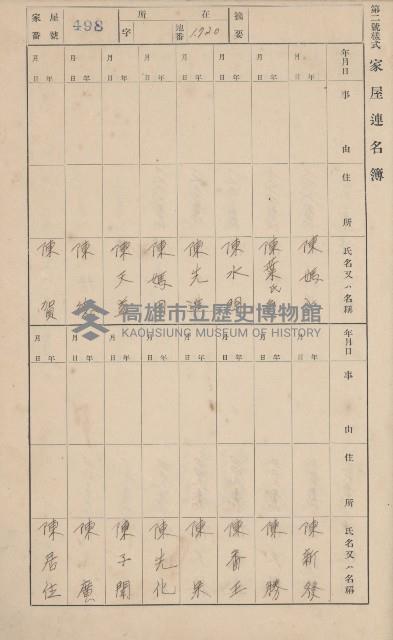 第二號樣式 家屋連名簿
摘要
所在
地番 1920
字
家屋番號 498
年月日
事由
住所
氏名又ハ名稱
年月日
年月日
年月日
年月日
年月日
年月日
年月日
年月日
陳媽
陳葉氏
陳水
陳先
陳媽
陳天
陳
陳賀
高雄市立歷史博物館
KAOHSIUNG MUSEUM OF HISTORY
年月日
事由
住所
氏名又ハ名稱
年月日
年月日
年月日
年月日
年月日
年月日
年月日
年月日
陳新發
陳勝
陳香玉
陳泉
陳先化
陳子開
陳廣
陳居住